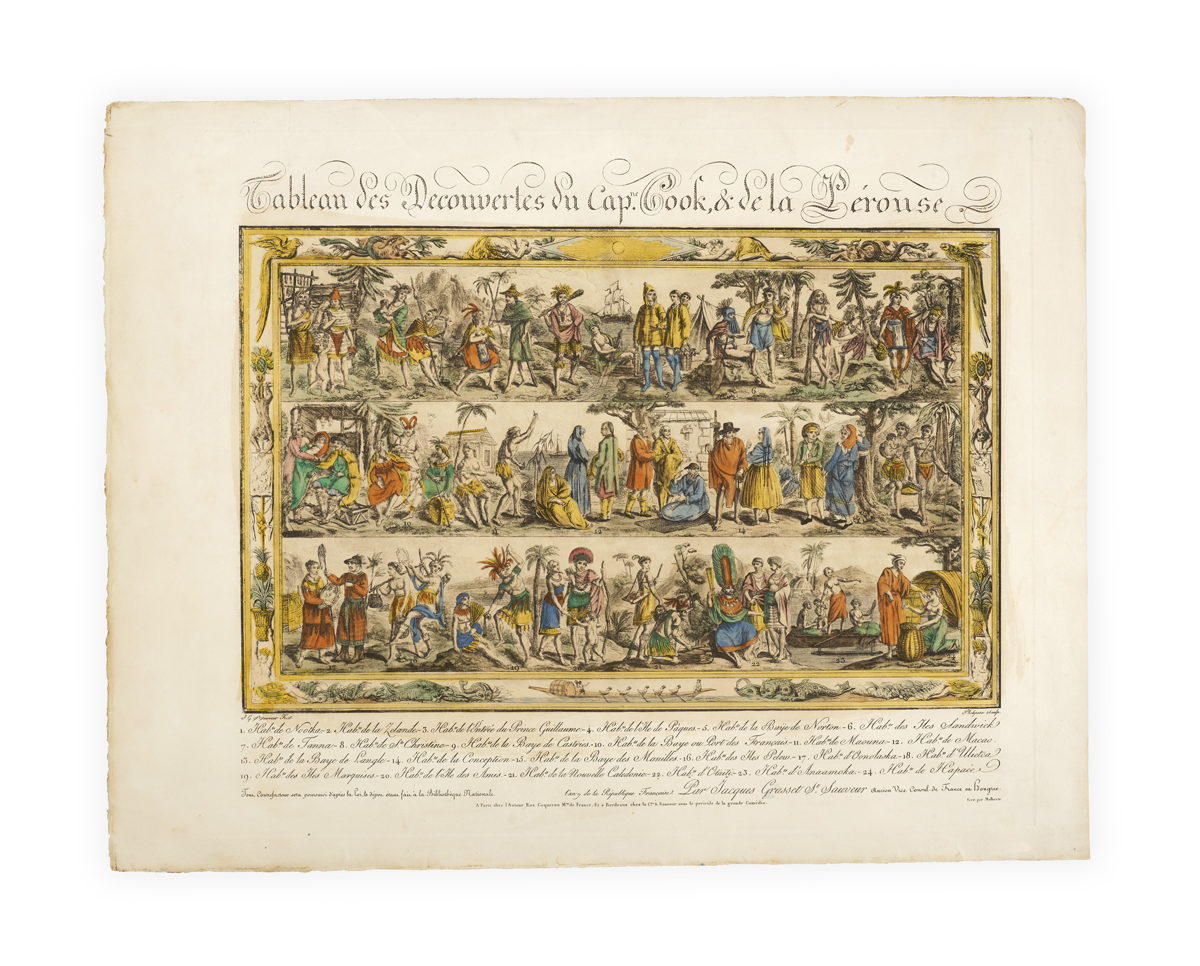 Tableau des Decouvertes du Cap.ne Cook, & de la Pérouse.
J. G. St Sauveur Fecit
Phelipeau Sculp.
1. Hab.ns de Nootka - 2. Hab.ns de la Zelande - 3. Hab.ns de l'Entrée du Prince Guillaume - 4. Hab.ns de l'Ile de Pâques - 5. Hab.ns de la Baye de Norton - 6. Hab.ns des Iles Sandwick
7. Hab.ns de Tanna - 8. Hab.ns de Ste Christine - 9. Hab.ns de la Baye de Castries - 10. Hab.ns de la Baye ou Port des Français - 11. Hab.ns de Maouna - 12. Hab.ns de Macao.
13. Hab.ns de la Baye de Langle - 14. Hab.ns de la Conception - 15. Hab.ns de la Baye des Manilles - 16. Hab.ns des Iles Pelew - 17. Hab.ns d'Oonolaska - 18. Hab.ns d'Ulietea
19. Hab.ns des Iles Marquises - 20. Hab.ns de l'Ile des Amis - 21. Hab.ns de la Nouvelle Calédonie - 22. Hab.ns d'Otaiti - 23. Hab.ns d'Anaamoka - 24. Hab.ns de Hapaée
Tous Contrefacteurs sera poursuivi d'apres la loi, le dépot étant fait à la Bibliothèque Nationale.
l'an 7 de la République Française. Par Jacques Grasset St. Sauveur Ancien Vice Consul de France en Hongrie.
A Paris chez l'Auteur Rue Coqueron Mon de France. Et à Bordeaux chez la Cne St Sauveur sous le peristile de la grande Comédie.
Ecrit par Malbeste